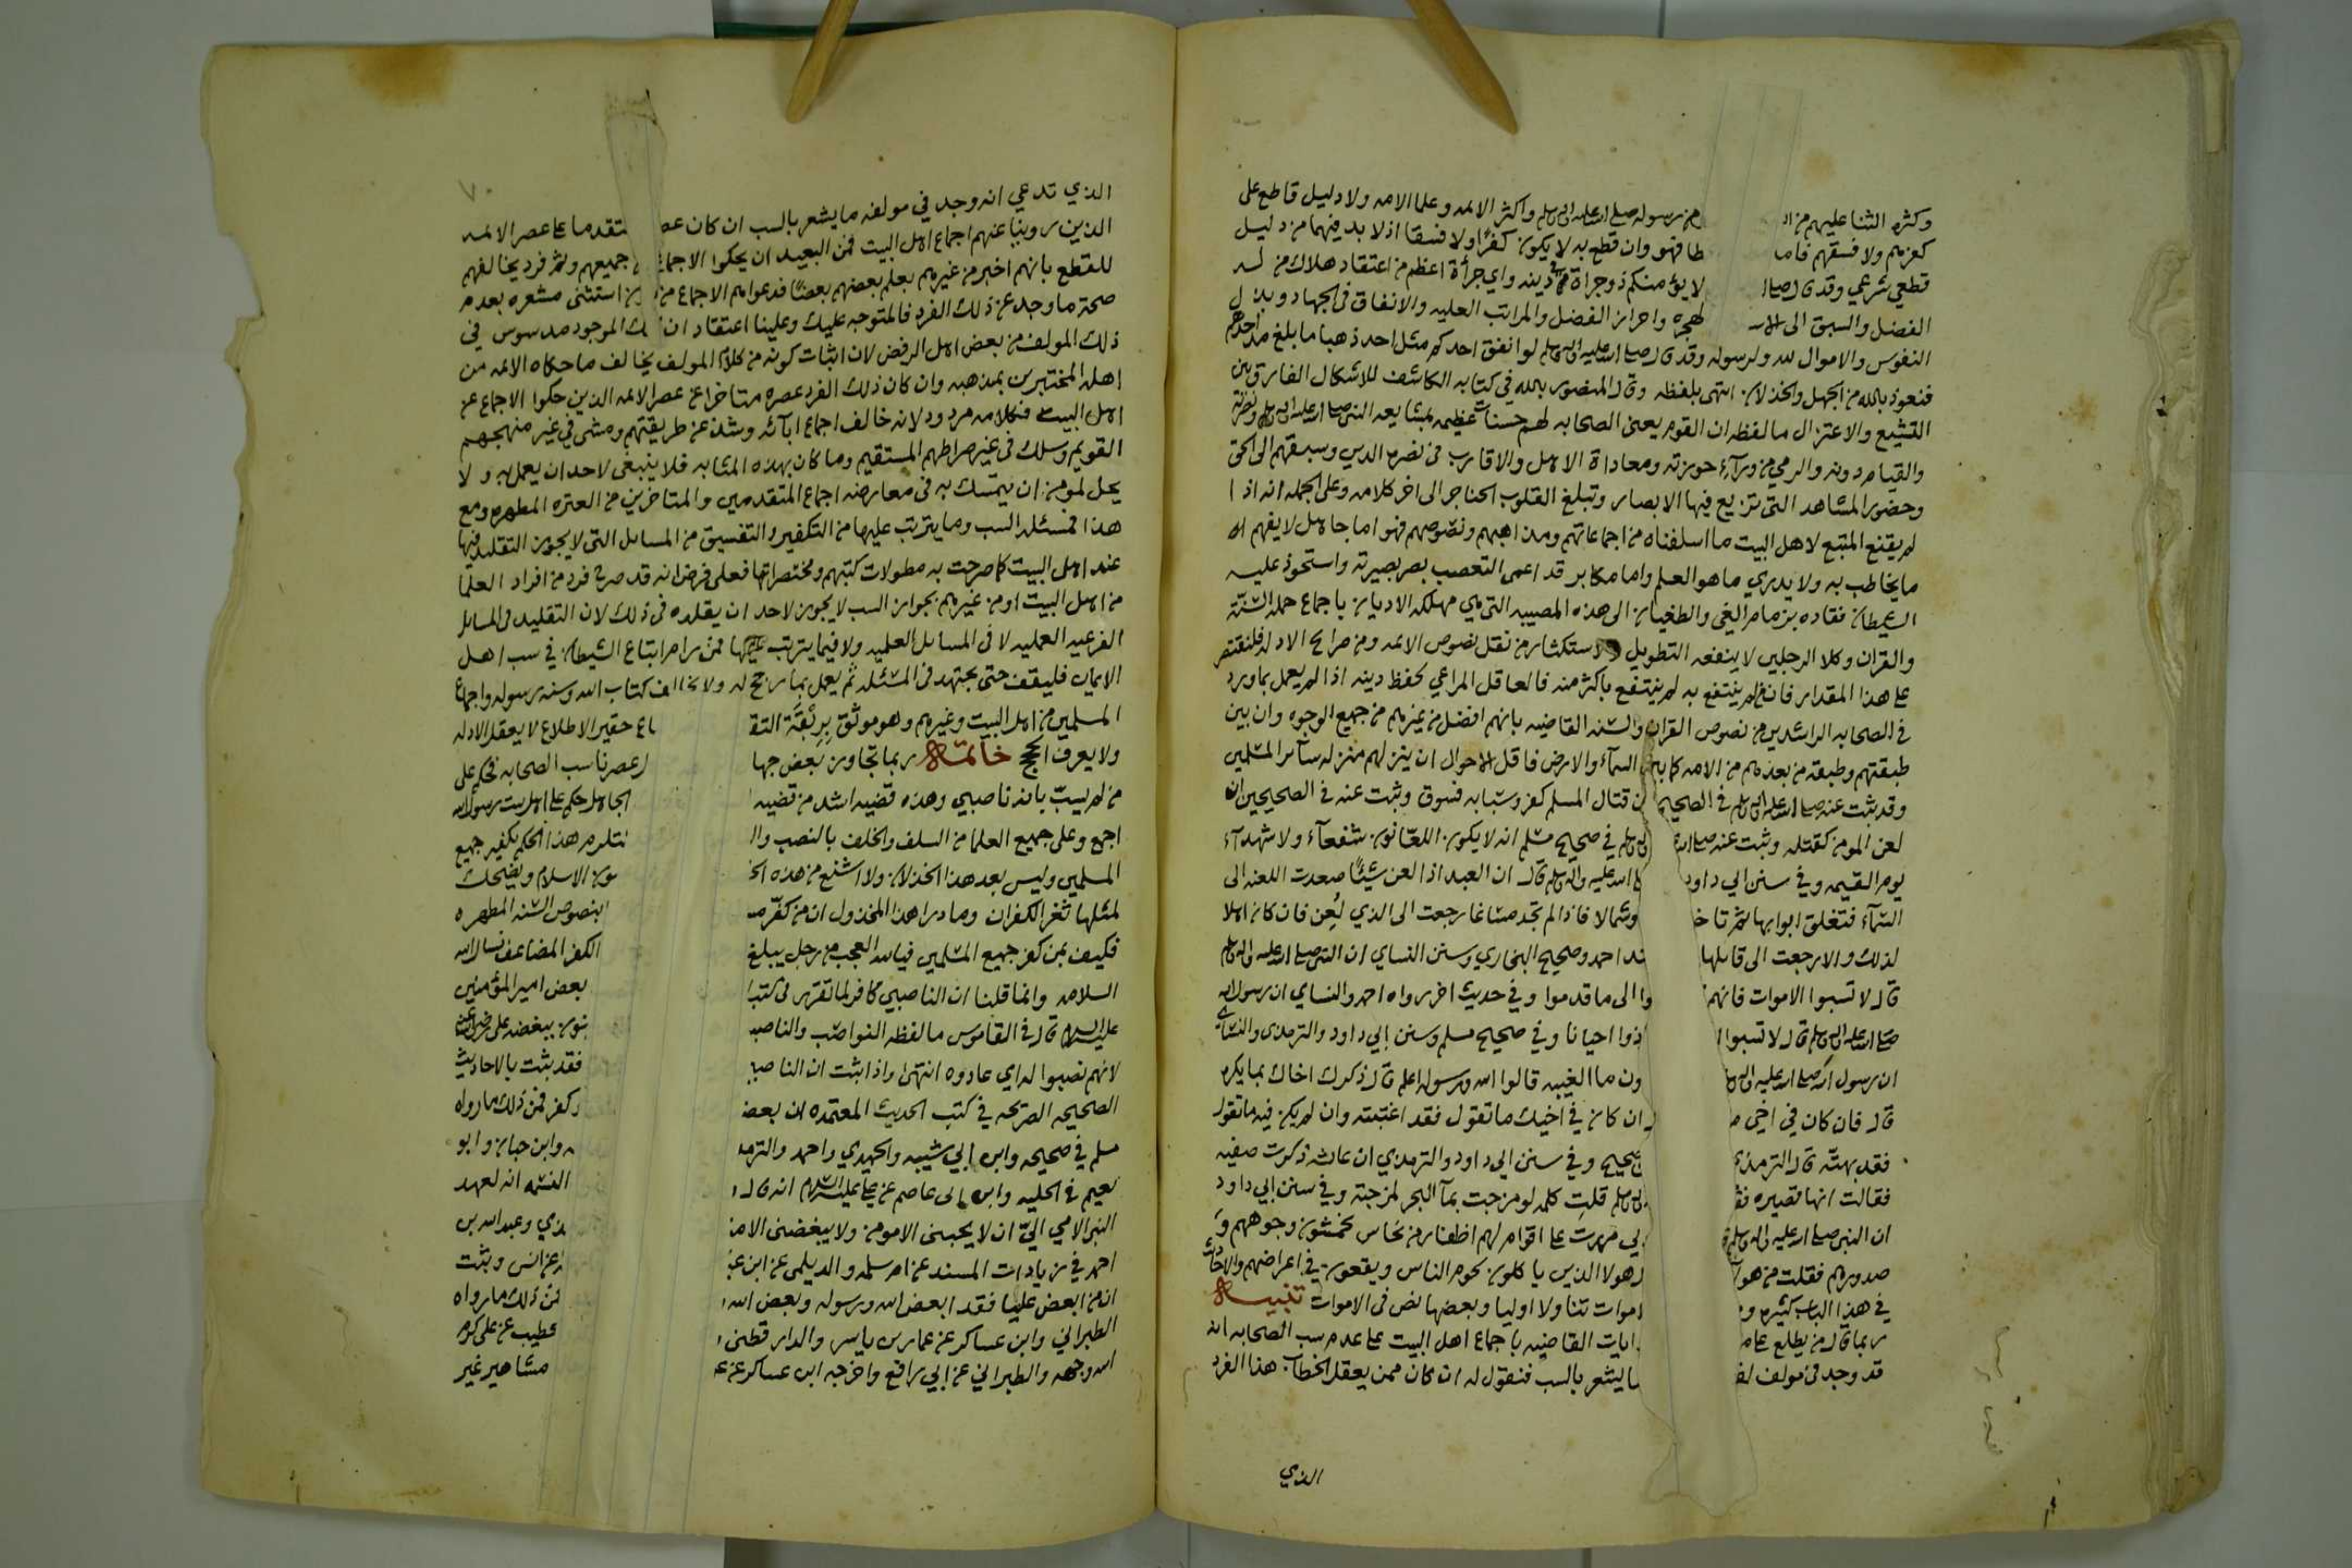 وكثره الثنا عليهم من ا من رسوله صلى الله عليه واله وسلم واكثر الائمه وعلما الامه ولا دليل قاطع على
كفرهم ولا فسقهم فاما طا فهو وان قطع به لا يكون كفرًا ولا فسقا اذ لا بد فيهما من دليل
قطعي شرعي وقد قال صلى ا لا يؤمنكم ذو جراة في دينه واي جرأة اعظم من اعتقاد هلاك من له
الفضل والسبق الى الاسـ لهجره واحراز الفضل والمراتب العليه والانفاق في الجهاد وبذل
النفوس والاموال لله ولرسوله وقد قال صلى الله عليه واله وسلم لو انفق احدكم مثل احد ذهبا ما بلغ مد احدهم
فنعوذ بالله من الجهل والخذلان انتهى بلفظه وقال المنصور بالله في كتابه الكاشف للاشكال الفارق بين
التشيع والاعتزال ما لفظه ان القوم يعنى الصحابه لهم حسنات عظيمه بمشايعه النبي صلى الله عليه واله وسلم ونصرته
والقيام دونه والرمي من ورآء حوزته ومعاداة الاهل والاقارب في نصره الدين وسبقهم الى الحق
وحضور المشاهد التى تزيع فيها الابصار وتبلغ القلوب الحناجر الى اخر كلامه وعلى الجمله انه اذا
لم يقنع المتبع لاهل البيت ما اسلفناه من اجماعاتهم ومذاهبهم ونصوصهم فهو اما جاهل لا يفهم
ما يخاطب به ولا يدري ما هو العلم واما مكابر قد اعمى التعصب بصر بصيرته واستحوذ عليه
الشيطان فقاده بزمام الغي والطغيان الى هذه المصيبه التى هي مهلكه الاديان باجماع حمله السنة
والقران وكلا الرجلين لا ينفعه التطويل والاستكثار من نقل نصوص الائمه ومن صرايح الادله فلنقتصر
على هذا المقدار فان من لم ينتفع به لم ينتفع باكثر منه فالعاقل المراعي لحفظ دينه اذا لم يعمل بما ورد
في الصحابه الراشدين من نصوص القران والسنه القاضيه بانهم افضل من غيرهم من جميع الوجوه وان بين
طبقتهم وطبقه من بعدهم من الامه كما بين السمآء والارض فاقل الاحوال ان ينزلهم منزله سآئر المسلمين
وقد ثبت عنه صلى الله عليه واله وسلم في الصحيح ن قتال المسلم كفر وسبابه فسوق وثبت عنه في الصحيحين ان
لعن المومن كقتله وثبت عنه صلى الله واله وسلم في صحيح مسلم انه لا يكون اللعّانون شفعآء ولا شهدآء
يوم القيمه وفي سنن ابي داود الله عليه واله وسلم قال ان العبد اذا لعن شيئًا صعدت اللعنه الى
السمآء فتغلق ابوابها ثم تاخـ وشمالا فاذا لم تجد مساغا رجعت الى الذي لُعِن فان كان اهلا
لذلك والا رجعت الى قايلها ند احمد وصحيح البخاري وسنن النساي ان النبي صلى الله عليه واله وسلم
قال لا تسبوا الاموات فانهم وا الى ما قدموا وفي حديث اخر رواه احمد والنساي ان رسول الله
صلى الله عليه واله وسلم قال لا تسبوا ا ذوا احيانا وفي صحيح مسلم وسنن ابي داود والترمذى والنسائي
ان رسول الله صلى الله عليه واله ون ما الغيبه قالوا الله ورسوله اعلم قال ذكرك اخاك بما يكره
قال فان كان في اخي ان كان في اخيك ما تقول فقد اغتبته وان لم يكن فيه ما تقول
فقد بهتّه قال الترمذي صحيح وفي سنن ابي داود والترمذي ان عائشه ذكرت صفيه
فقالت انها قصيره فقـ وسلم قلتِ كلمه لو مزجت بمآ البحر لمزجته وفي سنن ابي داود
ان النبي صلى الله عليه واله وسلم بي مررت على اقوام لهم اظفار من نحاس يخمشون وجوههم و
صدورهم فقلت من هو هولا الذين ياكلون لحوم الناس ويقعون في اعراضهم والاحاديث
في هذا الباب كثيره و اموات تناولا اوليا وبعضها نص في الاموات تنبيه
ربما قال من يطلع على ايات القاضيه باجماع اهل البيت على عدم سب الصحابه انه
قد وجد في مولف لفـ ما يشعر بالسب فنقول له ان كان ممن يعقل الخطاب هذا الفرد
الذي
٧٠
الذي تدعي انه وجد في مولفه ما يشعر بالسب ان كان عصـ متقدما على عصر الائمه
الذين روينا عنهم اجماع اهل البيت فمن البعيد ان يحكوا الاجماع جميعهم وثم فرد يخالفهم
للقطع بانهم اخبر من غيرهم بعلم بعضهم بعضًا فدعواهم الاجماع من استثنى مشعره بعدم
صحة ما وجد عن ذلك الفرد فالمتوجه عليك وعلينا اعتقاد ان ك الموجود مدسوس في
ذلك المولف من بعض اهل الرفض لان اثبات كونه من كلام المولف يخالف ما حكاه الائمه من
اهله المختبرين بمذهبه وان كان ذلك الفرد عصره متاخرا عن عصر الائمه الذين حكوا الاجماع عن
اهل البيت فكلامه مردود لانه خالف اجماع ابآئه وشذ عن طريقتهم ومشى في غير منهجهم
القويم وسلك في غير صراطهم المستقيم وما كان بهذه المثابه فلا ينبغي لاحد ان يعمل به ولا
يحل لمومن ان يتمسك به في معارضه اجماع المتقدمين والمتاخرين من العتره المطهره ومع
هذا فمسئله السب وما يترتب عليها من التكفير والتفسيق من المسايل التى لا يجوز التقليد فيها
عند اهل البيت كما صرحت به مطولات كتبهم ومختصراتها فعلى فرض انه قد صرح فرد من افراد العلما
من اهل البيت او من غيرهم بجواز السب لا يجوز لاحد ان يقلده في ذلك لان التقليد في المسايل
الفرعيه العمليه لا في المسايل العلميه ولا فيما يترتب عليها فمن رام اتباع الشيطان في سب اهل
الايمان فليقف حتى يجتهد في المسئله ثم يعمل بما رجح له ولا يخالف كتاب الله وسنه رسوله واجماع
المسلمين من اهل البيت وغيرهم وهو موثق بِرِبْقَة التقـ باع حقير الاطلاع لا يعقل الادله
ولا يعرف الحجج خاتمه ربما تجاوز بعض جها ل عصرنا سب الصحابه فحكم على
من لم يسبّ بانه ناصبي وهذه قضيه اشد من قضيه الجاهل حكم على اهل بيت رسول الله
اجمع وعلى جميع العلما من السلف والخلف بالنصب وا تلزم هذا الحكم تكفير جميع
المسلمين وليس بعد هذا الخذلان ولا اشنع من هذه الخـ الاسلام ويضحك
لمثلها ثغر الكفران وما درا هذا المخذول ان من كفّر مسـ بنصوص السنه المطهره
فكيف بمن كفر جميع المسلمين فيا لله العجب من رجل يبلغ الكفر المضاعف نسال الله
السلامه وانما قلنا ان الناصبي كافر لما تقرر في كتب ا بعض امير المؤمنين
عليه السلام قال في القاموس ما لفظه النواصب والناصبـ ببغضه على رضي الله عنه
لانهم نصبوا له اي عادوه انتهى واذا ثبت ان الناصبي فقد ثبت بالاحاديث
الصحيحه الصريحه في كتب الحديث المعتمده ان بعضـ كفر فمن ذلك ما رواه
مسلم في صحيحه وابن ابي شيبه والحميدي واحمد والترمذ وابن حبان وابو
نعيم في الحليه وابن ابى عاصم عن علي عليه السلام انه قال و النسمه انه لعهد
النبي الامي اليّ ان لا يحبني الا مومن ولا يبغضني الا منـ ذي وعبد الله بن
احمد في زيادات المسند عن ام سلمه والديلمى عن ابن عبـ عن انس وثبت
ان من ابغض عليا فقد ابغض الله ورسوله وبغض الله و فمن ذلك ما رواه
الطبراني وابن عساكر عن عمار بن ياسر والدار قطنى و خطيب عن على كرم
الله وجهه والطبراني عن ابي رافع واخرجه ابن عساكر عن مشاهير غير